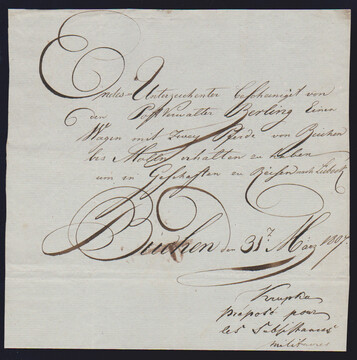 Endes-Unterzeichneter bescheiniget von
den Postverwalter Berling Einen
Wagen mit Zwey Pferde von
bis erhalten zu haben
um in Geschäften zu
den 31t. März 1807
Krupka
préposé pour
les Subsistances
militaires